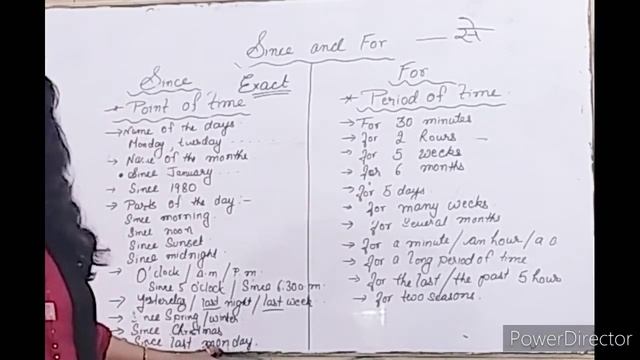 Since and For — से
Since Exact
* Point of time
→ Name of the days
Monday, tuesday
→ Name of the months
• Since January
→ Since 1980
→ Parts of the day :-
Since morning
Since noon
Since Sunset
Since midnight
→ O'clock / a.m / p.m
Since 5 o'clock / Since 6.30
→ Yesterday / last night / last week
Since Spring / winter
→ Since Christmas
Since last monday.
For
* Period of Time
→ For 30 minutes
→ for 2 hours
→ for 5 weeks
→ for 6 months
→ for 5 days
for many weeks
→ for several months
→ for a minute / an hour / a
→ for a long period of time
→ for the last / the past 5 hours
→ for two seasons.
PowerDirector